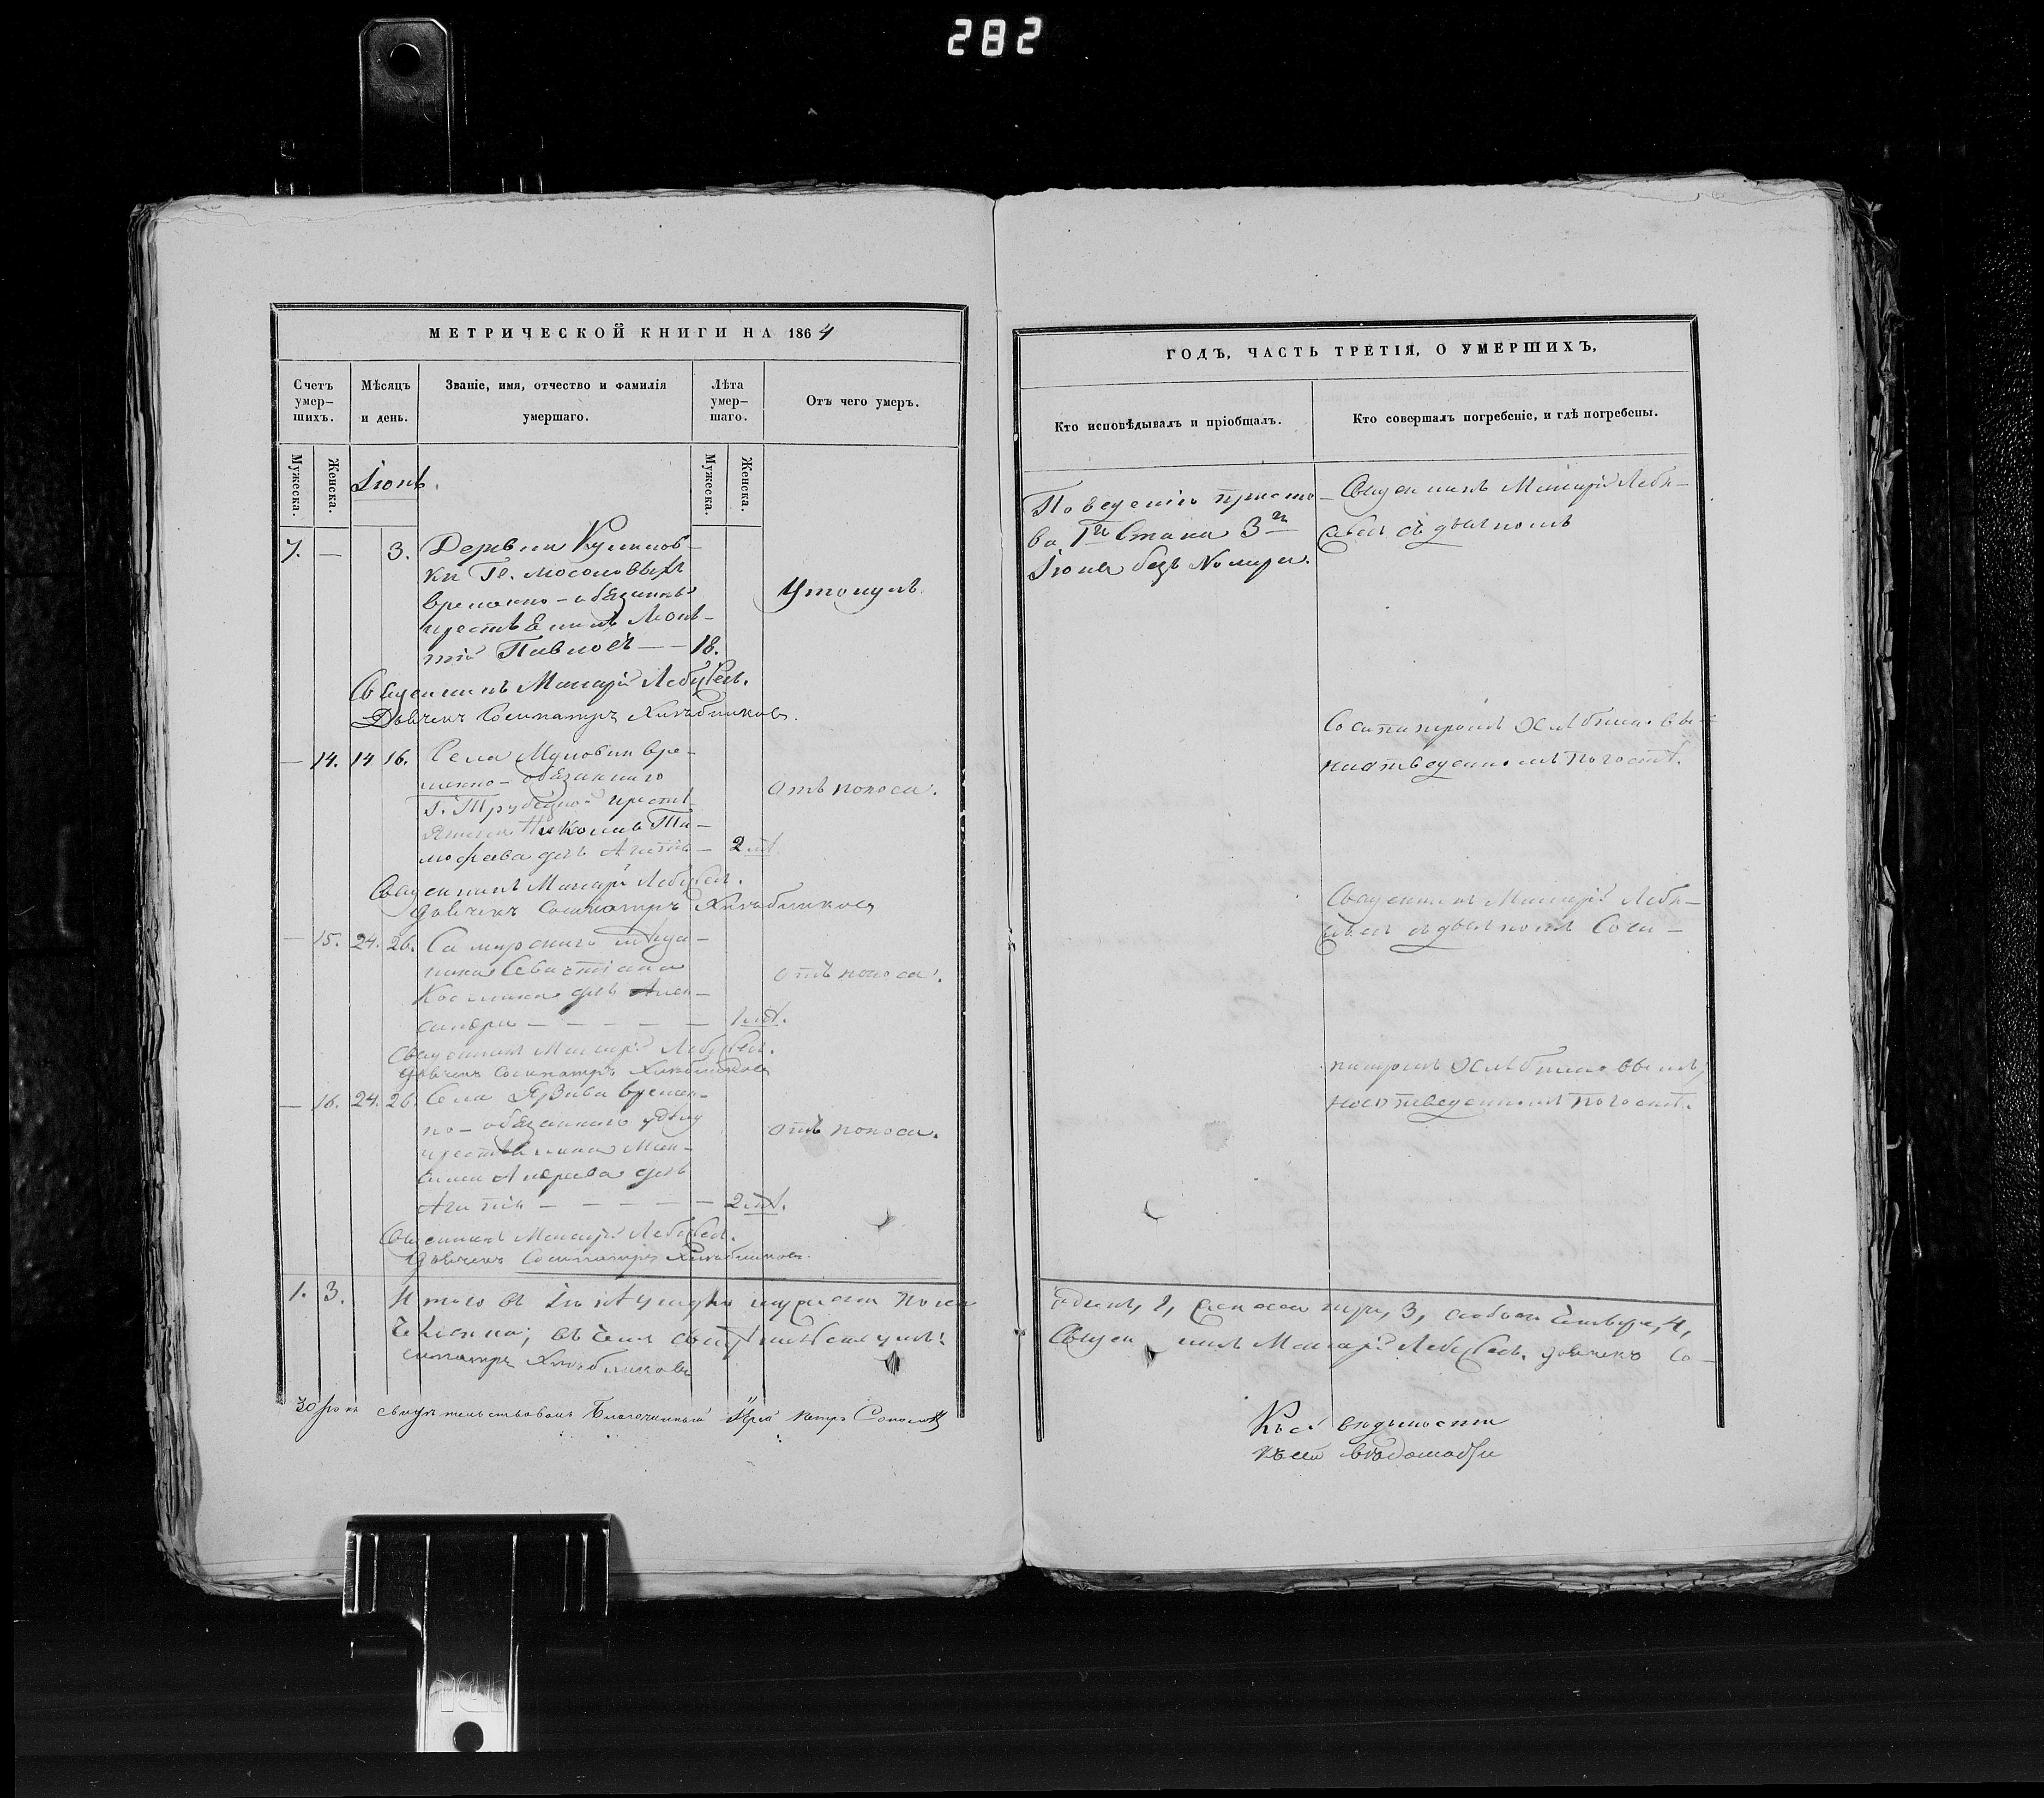 282
МЕТРИЧЕСКОЙ КНИГИ НА 1864
Счетъ умер-шихъ.
Мѣсяцъ и день.
Званіе, имя, отчество и фамилія умершаго.
Лѣта умер-шаго.
Отъ чего умеръ.
Мужеска.
Женска.
Мужеска.
Женска.
Іюнь.
7. — 3. Деревни Куликов-
ки Гг. Мосоловыхъ
временно-обязанный
крестьянинъ Леон-
тій Павловъ — — 18.
Утонулъ.
Священникъ Макарій Лебедевъ.
Дьячекъ Сосипатръ Хлѣбниковъ.
— 14. 14 16. Села вре-
менно-обязаннаго
Г. Трубецкой кресть-
янина Николая Ти-
мофеева дочь — 2 лѣт
отъ поноса.
Священникъ Макарій Лебедевъ.
Дьячекъ Сосипатръ Хлѣбниковъ
— 15. 24. 26. Самарскаго
Севастіана
Космина дочь Алек-
сандра — — — — — 1 лѣт.
отъ поноса.
Священникъ Макарій Лебедевъ.
Дьячекъ Сосипатръ Хлѣбниковъ
— 16. 24. 26. Села времен-
но-обязаннаго
крестьянина Мак-
сима Андреева дочь
— — — — — 2 лѣт.
отъ поноса.
Священникъ Макарій Лебедевъ.
Дьячекъ Сосипатръ Хлѣбниковъ.
1. 3. Итого въ Іюнѣ умерло мужеска пола
человека; въ чемъ свидѣтельствуемъ:
сипатръ Хлѣбниковъ
30 Іюня свидѣтельствовалъ Благочинный Іерей Петръ Соколовъ
ГОДЪ, ЧАСТЬ ТРЕТІЯ, О УМЕРШИХЪ,
Кто исповѣдывалъ и пріобщалъ.
Кто совершалъ погребеніе, и гдѣ погребены.
По веденію приста-
ва 1го Стана 3го
Іюня безъ Номера.
Священникъ Макарій Лебе-
девъ съ дьячкомъ
Сосипатромъ Хлѣбниковы-
на отведенномъ погостѣ.
Священникъ Макарій Лебе-
девъ съ дьячкомъ Соси-
патромъ Хлѣбниковымъ,
на отведенномъ погостѣ.
одинъ, 1, женска три, 3, обоего четыре, 4,
Священникъ Макарій Лебедевъ. дьячекъ Со-
Къ сей вѣдомости
Къ сей вѣдомости